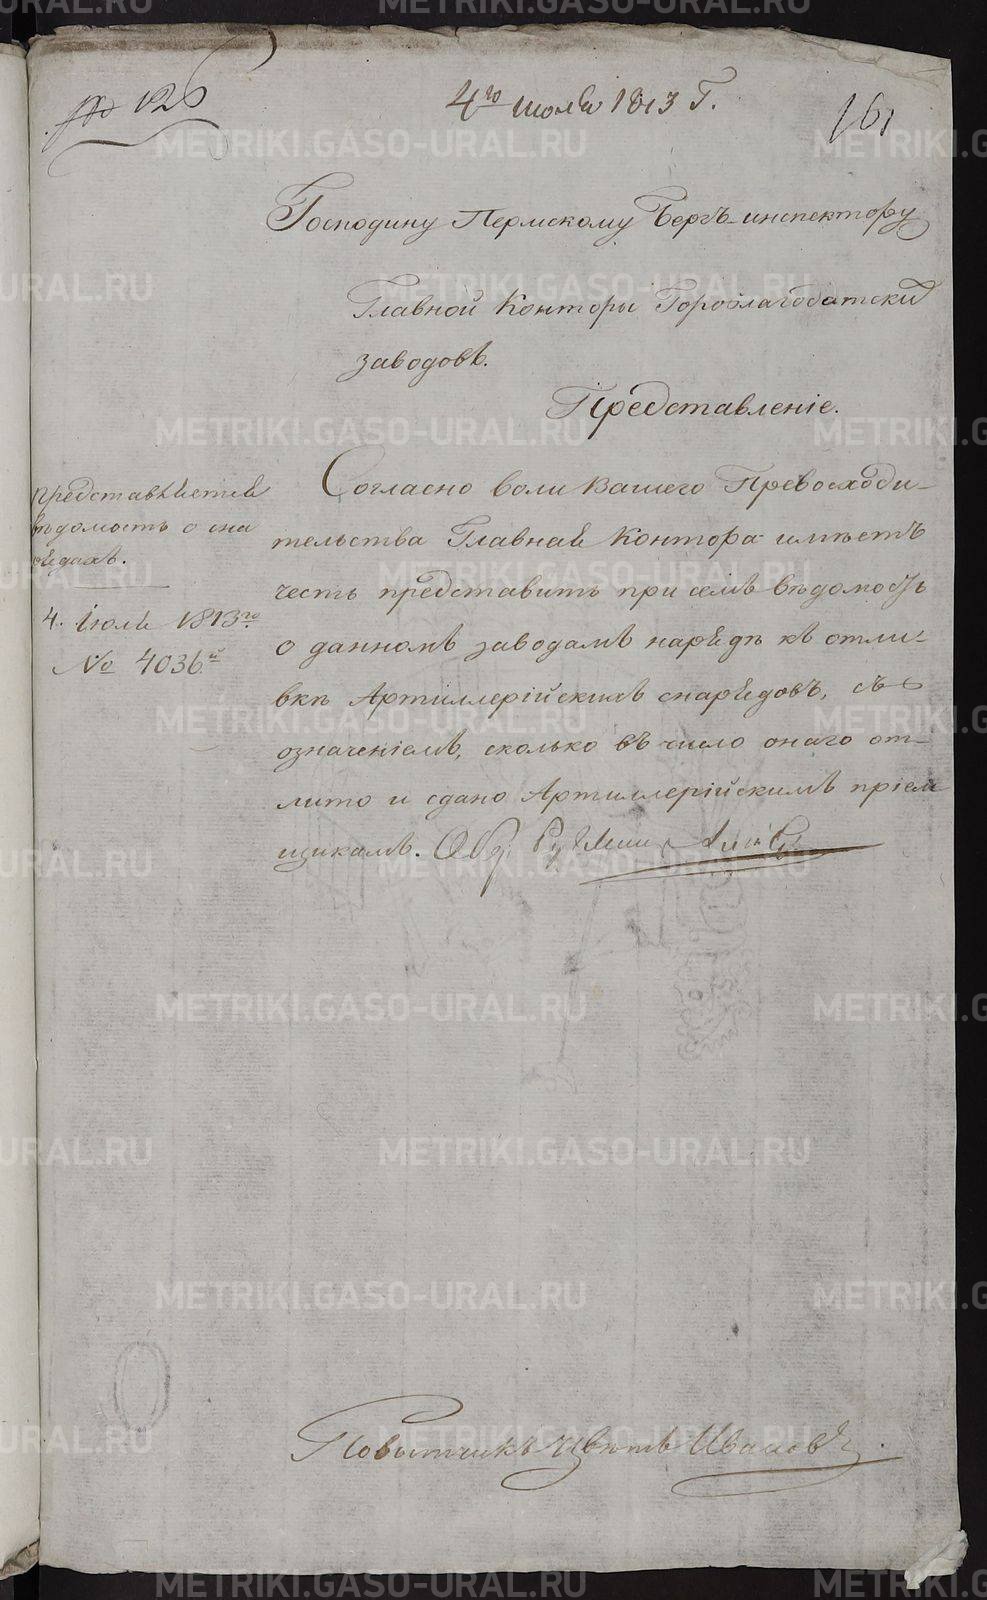 № 126
4го июля 1813 Г.
161
Господину Пермскому Бергъ-инспектору
Главной Конторы Гороблагодатски
заводовъ.
Представленіе.
Представляется
вѣдомость о сна
рядахъ.
4. Іюля 1813го
№ 4036й
Согласно воли Вашего Превосходи-
тельства Главная Контора имѣетъ
честь представить при семъ вѣдомость
о данномъ заводамъ нарядѣ къ отли-
вкѣ Артиллерійскихъ снарядовъ, съ
означеніемъ, сколько въ число онаго от-
лито и сдано Артиллерійскимъ пріем
щикамъ.
Повытчикъ Иванов
METRIKI.GASO-URAL.RU